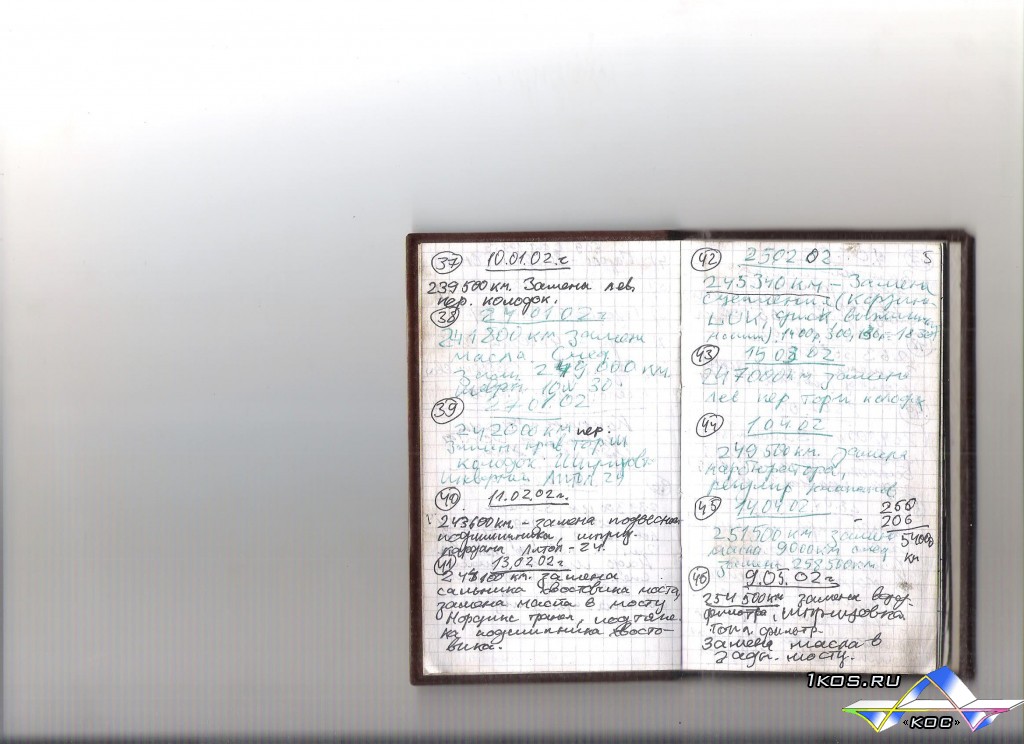 37 10.01.02г
239500км. Замена лев.
пер. колодок.
38 24.01.02г
241800км Замен
масла. След
249,000 км.
10W 30.
39 27.01.02
242000км пер.
Замена прав торм
колодок. Шприцов
шкворней Литол 24
40 11.02.02г.
243600км. - замена подвесного
подшипника, шприц.
кардана Литол-24.
41 13.02.02г
км. замена
сальника хвостовика моста,
замена масла в мосту
Нордикс транс, подтяж-
ка подшипника хвосто-
вика.
42 25 02 02 5
245340км - Замена
сцепления (корзина
LUK, диск
1400р, 300,
43 15 03 02
247000км Замена
лев пер торм колодок
44 1.04.02
249500км. Замена
карбюратора,
регулир клапанов
45 14.04.02 260
- 206
251500км замен 5400р
масла 9000км след км
замена 258500км
46 9.05.02г
254500км замена возд.
фильтра, шприцовка
Топл фильтр.
Замена масла в
задн. мосту.
1KOS.RU
«КОС»